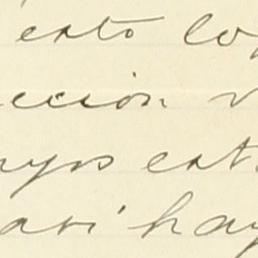 esto lo
ccion v
uyos est
asi hay